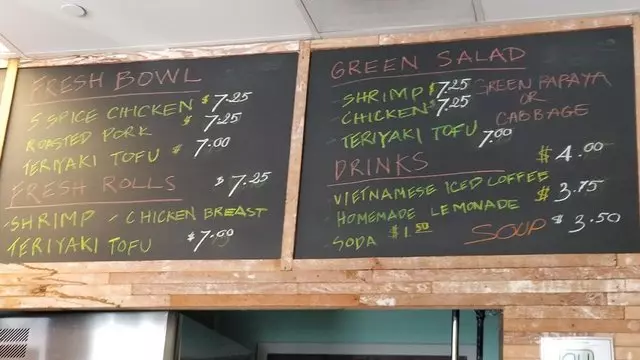 FRESH BOWL
5 SPICE CHICKEN $7.25
ROASTED PORK $7.25
TERIYAKI TOFU $7.00
FRESH ROLLS $7.25
SHRIMP / CHICKEN BREAST
TERIYAKI TOFU $7.00
GREEN SALAD
SHRIMP $7.25
CHICKEN $7.25
TERIYAKI TOFU 7.00
GREEN PAPAYA
OR
CABBAGE
DRINKS
VIETNAMESE ICED COFFEE $4.00
HOMEMADE LEMONADE $3.75
SODA $1.50
SOUP $3.50